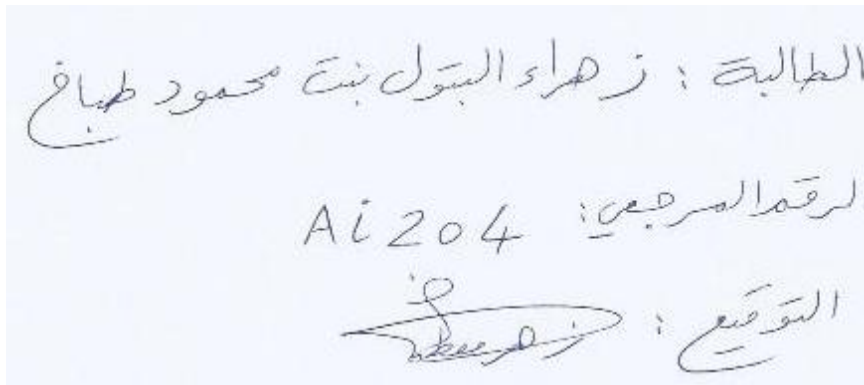 الطالبة : زهراء البتول بنت محمود طباخ
لرقم المرجعي: Ai 204
التوقيع :